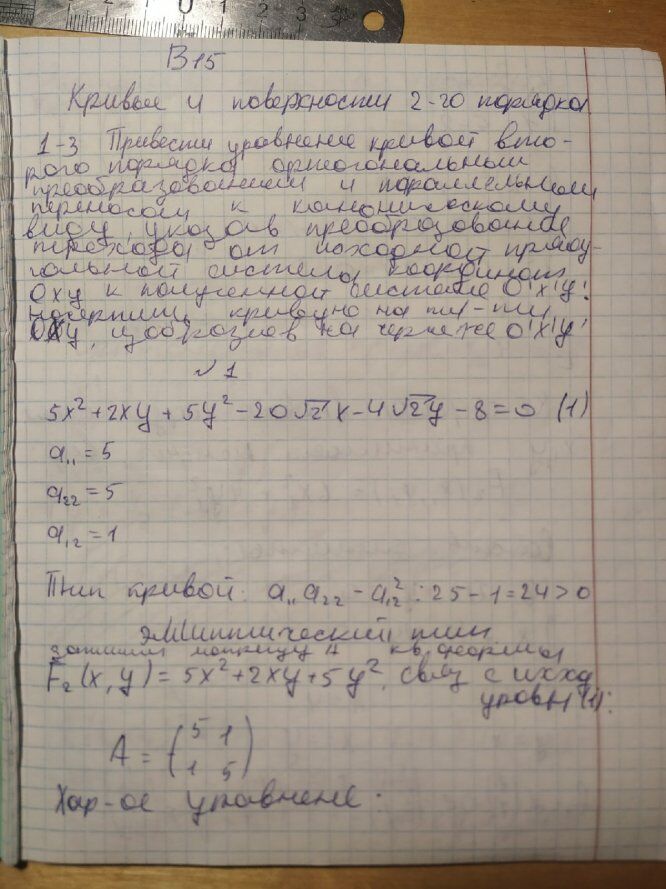 0 1 2 3
В15
Кривые и поверхности 2-го порядка
1-3 Привести уравнение кривой вто-
рого порядка ортогональным
преобразованием и параллельным
переносом к каноническому
виду, указав преобразование
перехода от исходной прямоу-
гольной системы координат
Oxy к полученной системе O'x'y'.
Начертить кривую на пл-ти
Oxy, изобразив на чертеже O'x'y'
√1
5x²+2xy+5y²-20√2 x-4√2y-8=0 (1)
a₁₁=5
a₂₂=5
a₁₂=1
Тип кривой: a₁₁a₂₂-a₁₂²:25-1=24>0
Эллиптический тип
запишем матрицу A кв. формы
F₂(x,y)=5x²+2xy+5y², связ с исход
уравн (1):
A = (5 1
1 5)
Хар-ое уравнене: